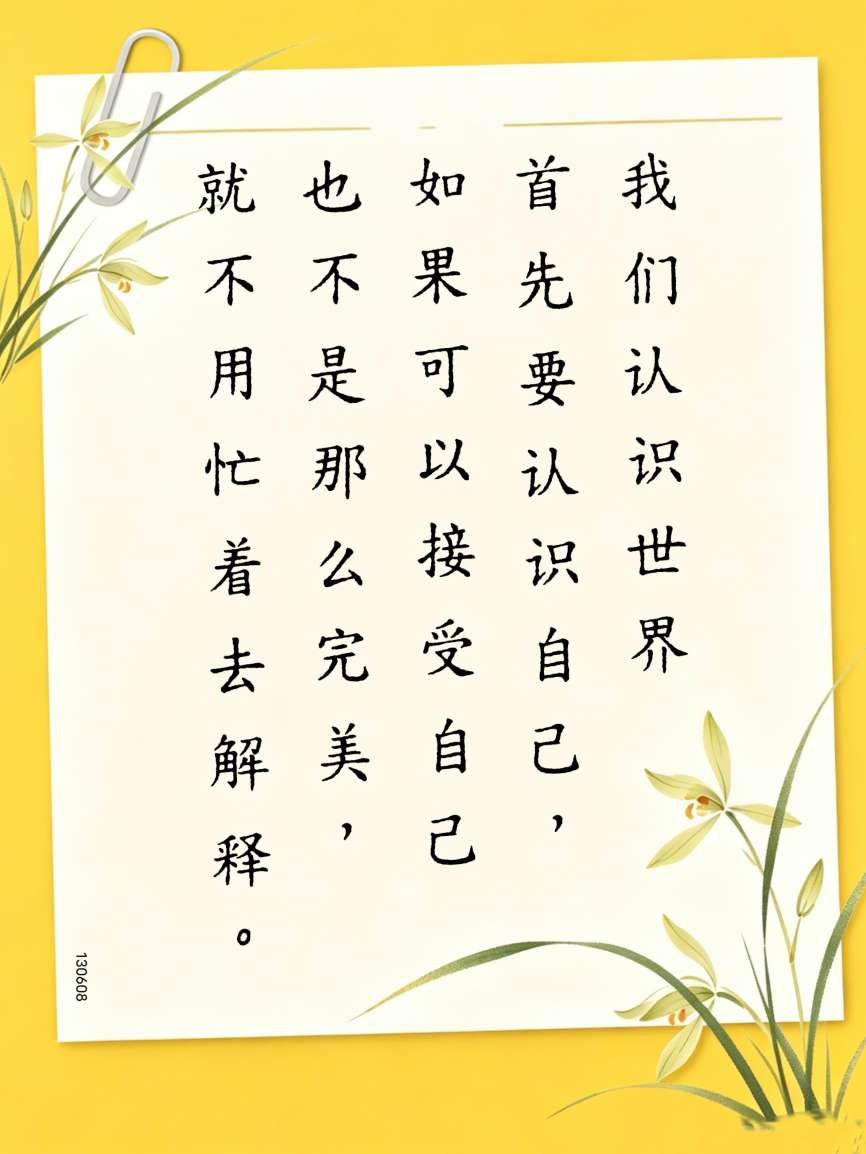 我们认识世界
首先要认识自己，
如果可以接受自己
也不是那么完美，
就不用忙着去解释。
130608